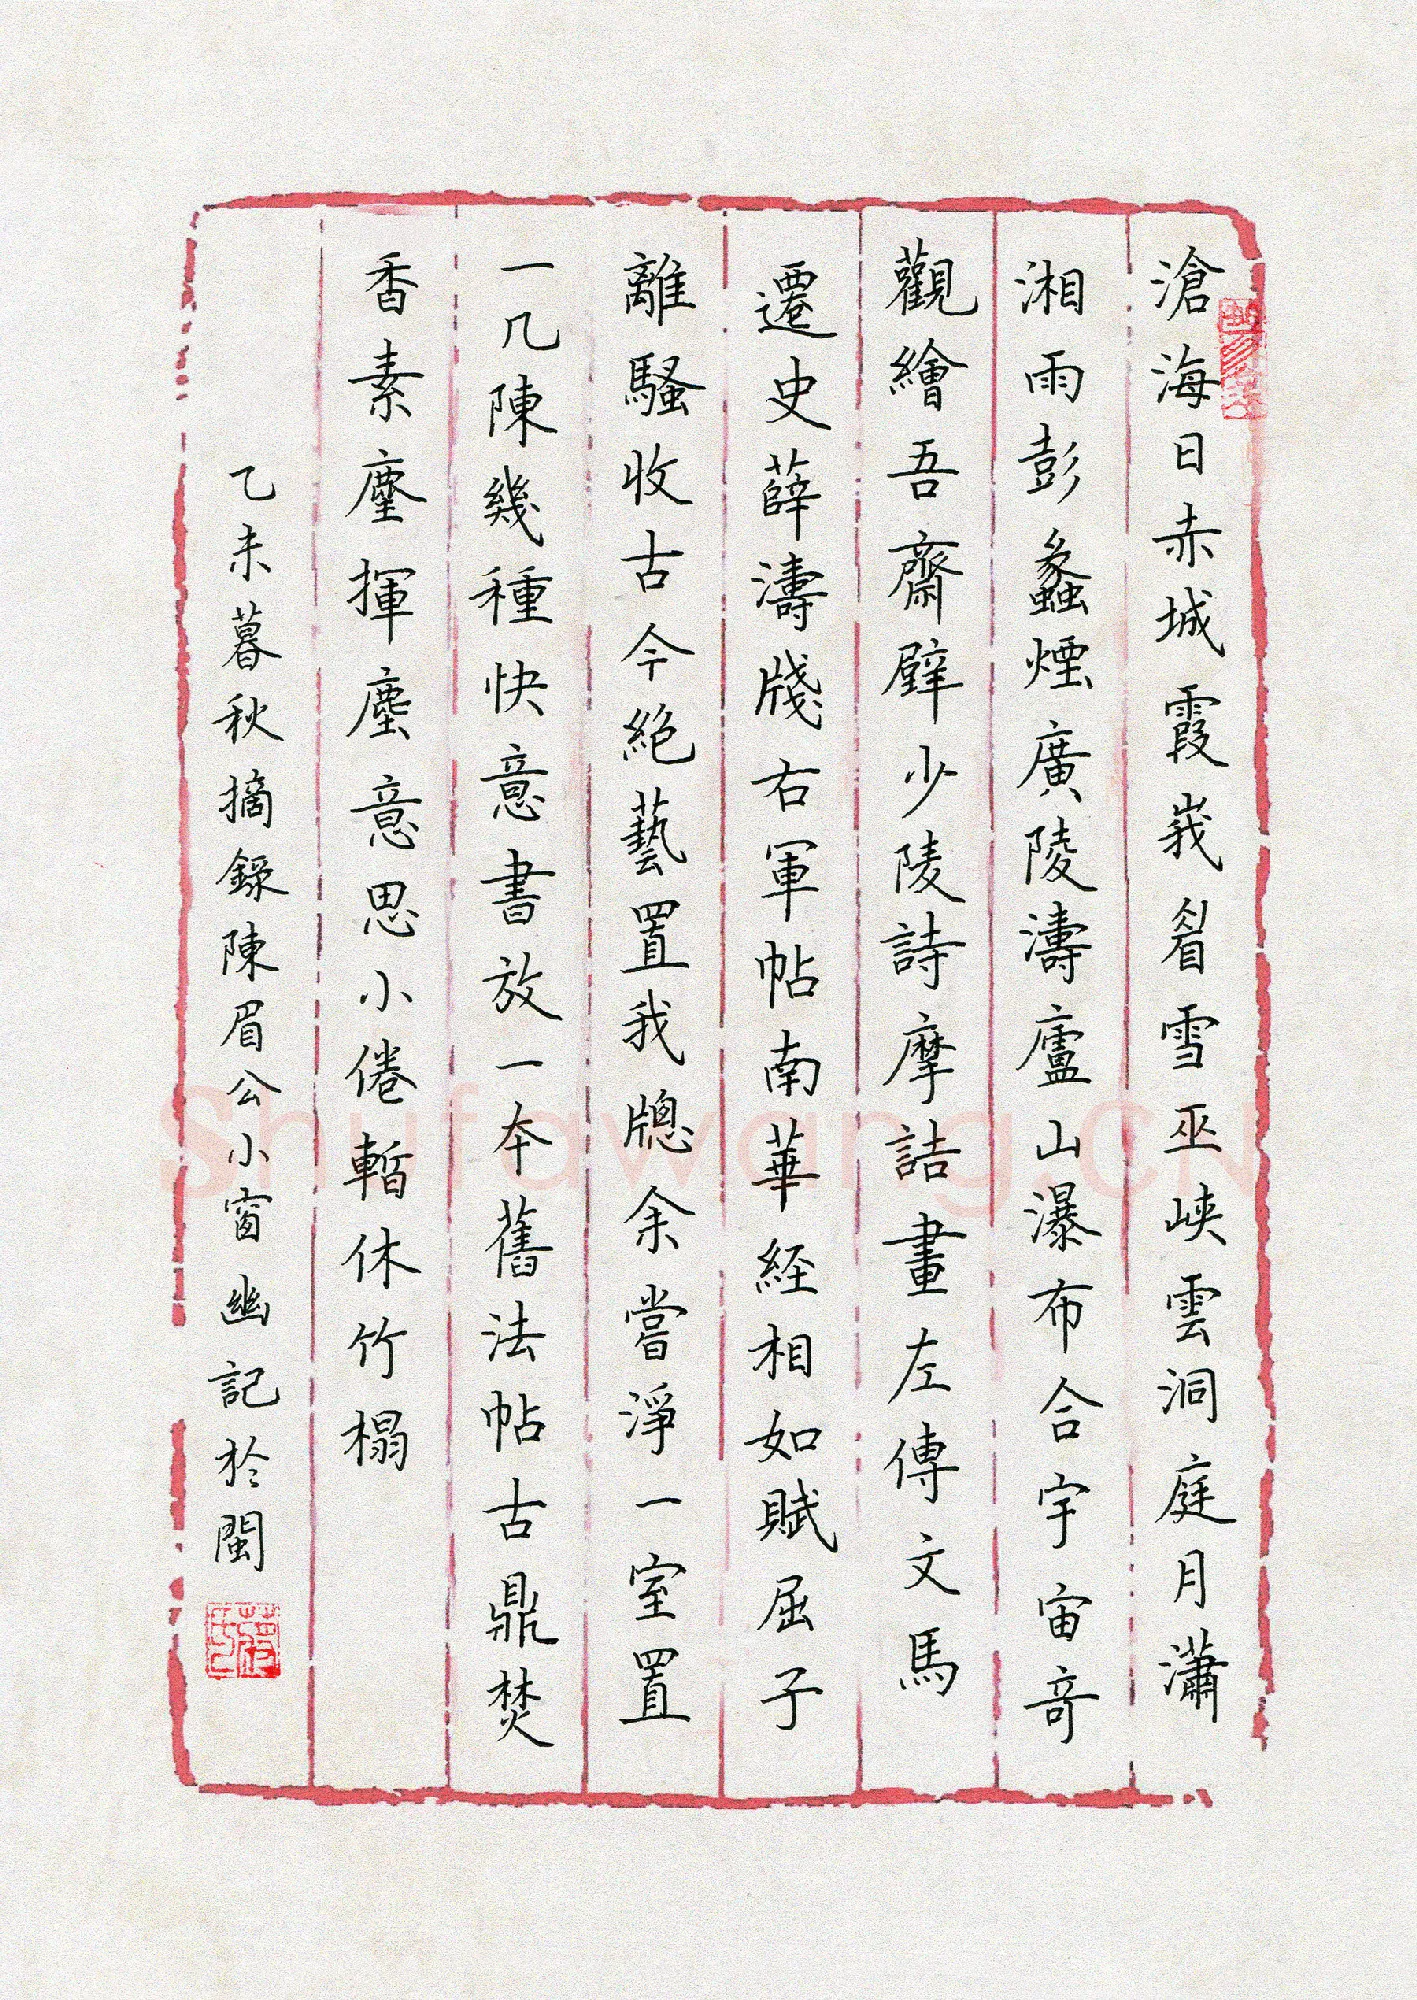 滄海日赤城霞峩眉雪巫峽雲洞庭月瀟
湘雨彭蠡煙廣陵濤廬山瀑布合宇宙奇
觀繪吾齋壁少陵詩摩詰畫左傳文馬
遷史薛濤牋右軍帖南華經相如賦屈子
離騷收古今絕藝置我牕余嘗淨一室置
一几陳幾種快意書放一本舊法帖古鼎焚
香素麈揮塵意思小倦暫休竹榻
乙未暮秋摘錄陳眉公小窗幽記於閩
Shufawang.CN